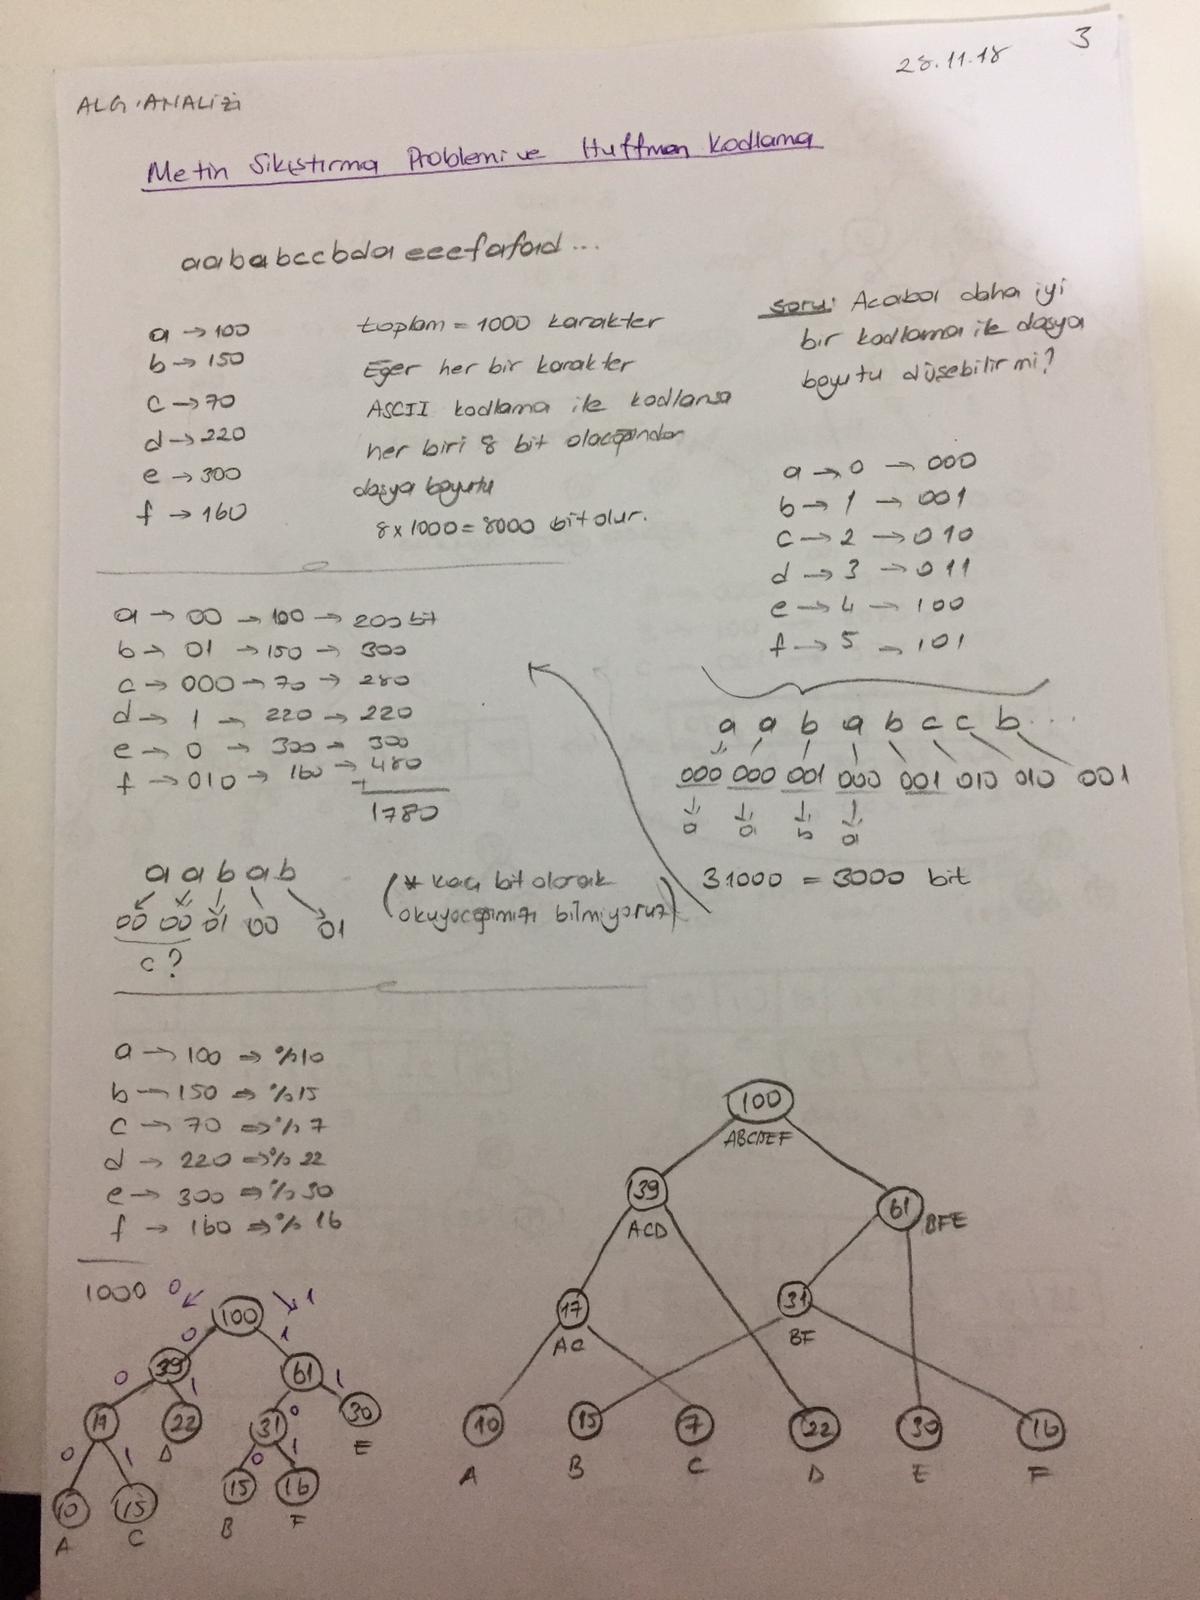 28.11.18
3
ALG. ANALİZİ
Metin Sıkıştırma Problemi ve Huffman Kodlama
aababccbdaeeefafad...
a → 100
b → 150
c → 70
d → 220
e → 300
f → 160
toplam = 1000 karakter
Eğer her bir karakter
ASCII kodlama ile kodlansa
her biri 8 bit olacağından
dosya boyutu
8 x 1000 = 8000 bit olur.
soru: Acaba daha iyi
bir kodlama ile dosya
boyutu düşebilir mi?
a → 0 → 000
b → 1 → 001
c → 2 → 010
d → 3 → 011
e → 4 → 100
f → 5 → 101
a a b a b c c b ...
000 000 001 000 001 010 010 001
a a b a
3 1000 = 3000 bit
a → 00 → 100 → 200 bit
b → 01 → 150 → 300
c → 000 → 70 → 280
d → 1 → 220 → 220
e → 0 → 300 → 300
f → 010 → 160 → 480
+
1780
a a b a b
00 00 01 00 01
c?
(* kaç bit olarak
okuyacağımızı bilmiyoruz)
a → 100 ⇒ %10
b → 150 ⇒ %15
c → 70 ⇒ %7
d → 220 ⇒ %22
e → 300 ⇒ %30
f → 160 ⇒ %16
1000
0 1
100
0 1
39 61
0 1 0 1
22 31 30
D E
0 1 0 1
10 15 15 16
A C B F
100
ABCDEF
139 61
ACD BFE
17 31
AC BF
10 15 7 22 30 16
A B C D E F